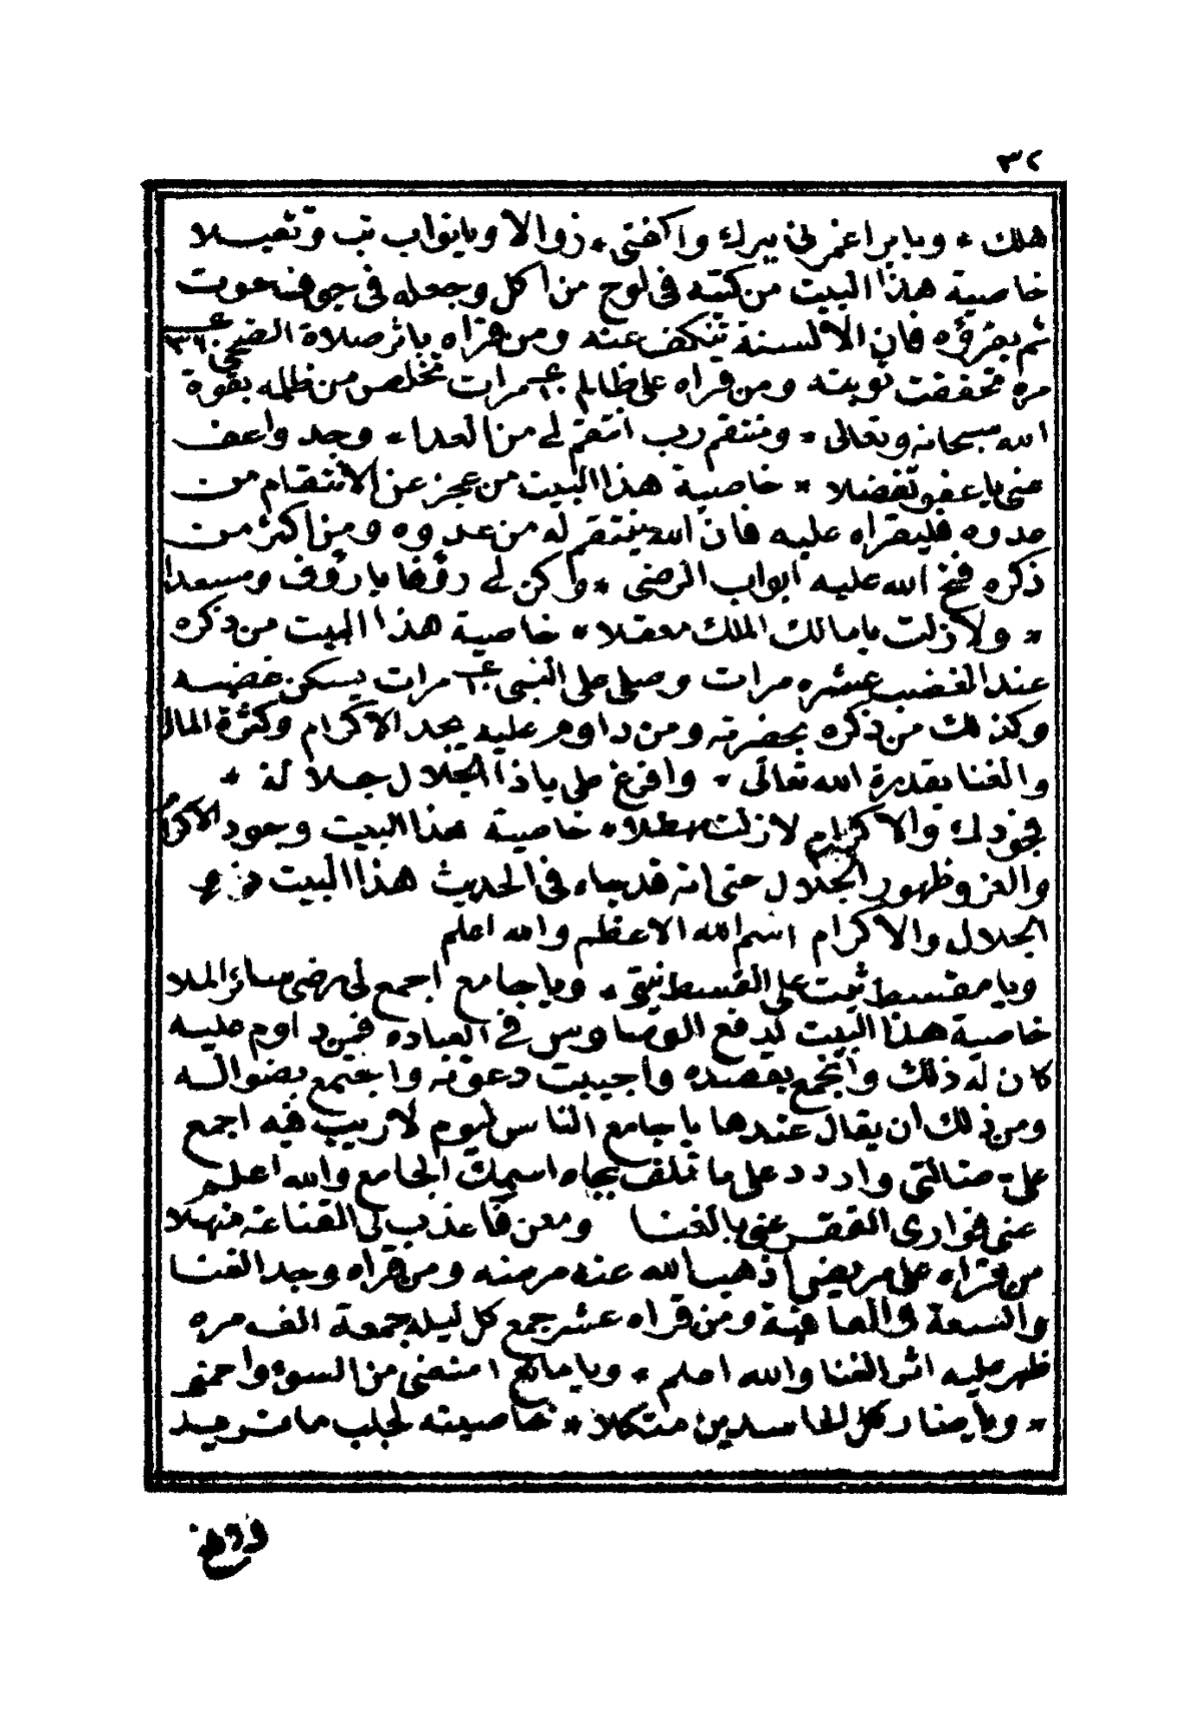 ٣٢
هلك * ويا بر اغمرني ببرك واكفني * زوالا ويا تواب تب وتقبلا
خاصية هذا البيت من كتبه في لوح من اكل وجعله في جوف حوت
ثم يقرؤه فان الالسنة تنكف عنه ومن قراه باثر صلاة الضحى ٣٦٠
مره تحققت توبته ومن قراه على ظالم ١٠ مرات تخلص من ظلمه بقوة
الله سبحانه وتعالى * ومنتقم رب انتقم لي من العدا * وجد واعف
عني يا عفو تفضلا * خاصية هذا البيت من عجز عن الانتقام من
عدوه فليقراه عليه فان الله ينتقم له من عدوه ومن اكثر من
ذكره فتح الله عليه ابواب الرضى * وكن لي رؤفا يا رؤف ومسعدا
* ولا زلت يا مالك الملك معقلا * خاصية هذا البيت من ذكره
عند الغضب عشره مرات وصلى على النبي ١٠ مرات يسكن غضبه
وكذلك من ذكره بحضرته ومن داوم عليه يجد الاكرام وكثرة المال
والغنا بقدرة الله تعالى * وافرغ على يا ذا الجلال جلالة *
فجودك والاكرام لا زلت مهطلا * خاصية هذا البيت وجود الاكرام
والعز وظهور الجلال حتى انه قد جاء في الحديث هذا البيت
الجلال والاكرام اسم الله الاعظم والله اعلم
ويا مقسط ثبت على القسط نيتي * ويا جامع اجمع لي رضى سائر الملا
خاصية هذا البيت لدفع الوساوس في العباده فمن داوم عليه
كان له ذلك وانجمع بقصده واجيبت دعوته واجتمع بضوالـه
ومن ذلك ان يقال عندها يا جامع الناس ليوم لا ريب فيه اجمع
على ضالتي واردد على ما تلف بجاه اسمك الجامع والله اعلم
غني فواري الفقر عني بالغنا ومغن فاعذب لي القناعة منهلا
من قراه على مريض اذهب الله عنه مرضه ومن قراه وجد الغنا
والسعة والعافية ومن قراه عشر جمع كل ليله جمعة الف مره
ظهر عليه اثر الغنا والله اعلم * ويا مانع امنعني من السوء واحمني
* ويا ضار كل الحاسدين منكلا * خاصيته لجلب ما تريد